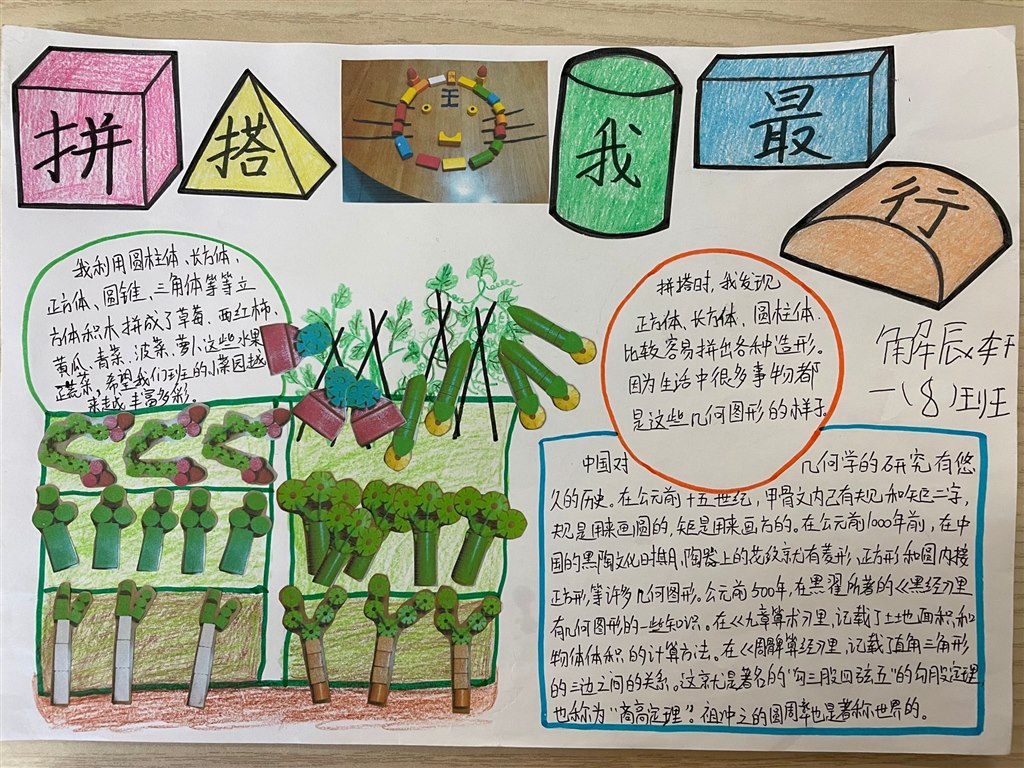 拼
搭
我
最
行
我利用圆柱体、长方体、
正方体、圆锥、三角体等等立
方体积木拼成了草莓、西红柿、
黄瓜、青菜、波菜、萝卜这些水果
蔬菜,希望我们班的小菜园越
来越丰富多彩。
拼搭时,我发现
正方体、长方体、圆柱体
比较容易拼出各种造形。
因为生活中很多事物都
是这些几何图形的样子
解辰轩
一(8)班
中国对几何学的研究有悠
久的历史。在公元前十五世纪,甲骨文内已有规和矩二字,
规是用来画圆的,矩是用来画方的。在公元前1000年前,在中
国的黑陶文化时期,陶器上的花纹就有菱形、正方形和圆内接
正方形等许多几何图形。公元前500年,在墨翟所著的《墨经》里
有几何图形的一些知识。在《九章算术》里,记载了土地面积和
物体体积的计算方法。在《周髀算经》里,记载了直角三角形
的三边之间的关系。这就是著名的"勾三股四弦五"的勾股定理
也称为"商高定理"。祖冲之的圆周率也是著称世界的。